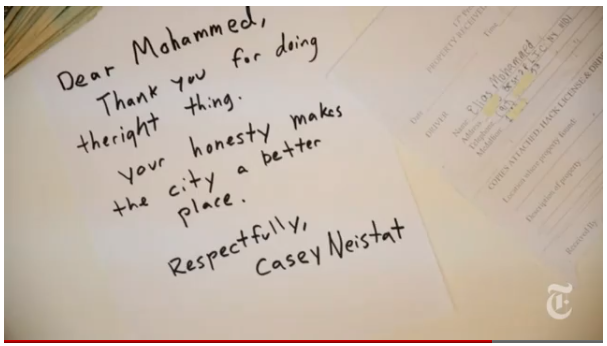 Dear Mohammed,
Thank you for doing
theright thing.
your honesty makes
the city a better
place.
Respectfully,
Casey Neistat
PROPERTY RECEIVED
Date
Time
DRIVER
Name Elias Mohammed
Address
Telephone
Medallion
COPIES ATTACHED, HACK LICENSE & DRIV
Location where property found:
Description of property
Received By
T